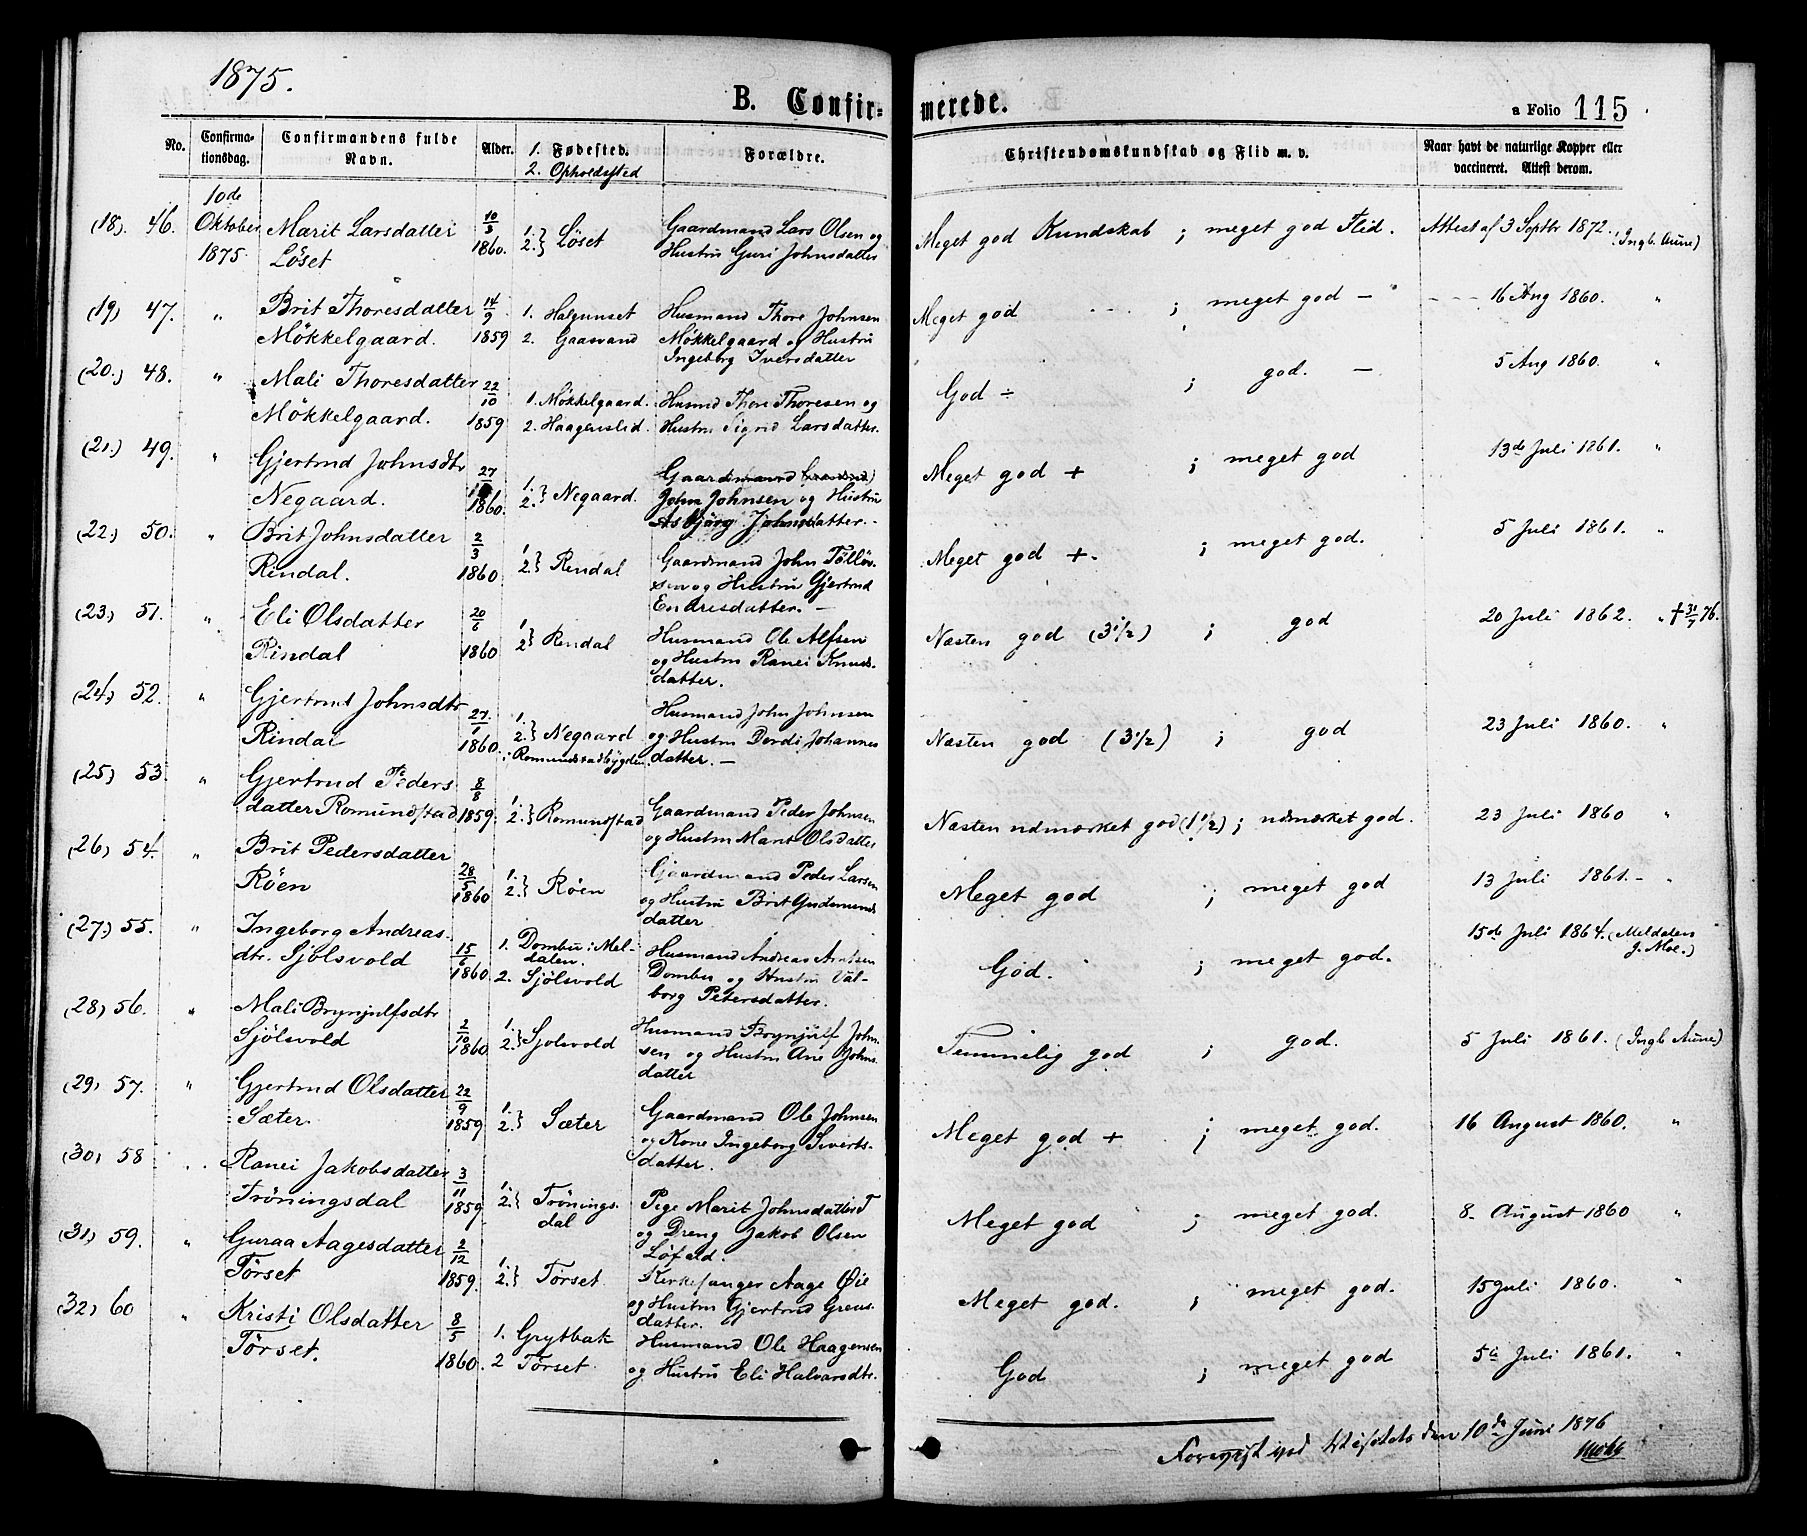 1875.
B. Confir-
merede.
a Folio 115
No.
Confirma-
tionsdag.
Confirmandens fulde
Navn.
Alder.
1. Fødested.
2. Opholdssted
Forældre.
Christendomskundskab og Flid m. v.
Naar havt de naturlige Kopper eller
vaccineret. Attest derom.
10de
Oktober
1875.
(18). 46.
Marit Larsdatter
Løset
10/3
1860.
1.
2. } Løset
Gaardmand Lars Olsen og
Hustru Guri Johnsdatter
Meget god Kundskab ; meget god Flid.
Attest af 3 Septbr 1872. (Ingb. Aune)
(19) 47. "
Brit Thoresdatter
Møkkelgaard.
14/9
1859
1. Halgunset
2. Gaasvand
Husmand Thore Johnsen
Møkkelgaard og Hustru
Ingeborg Iversdatter
Meget god ; meget god - "
16 Aug 1860. "
(20.) 48. "
Mali Thoresdatter
Møkkelgaard.
22/10
1859
1. Møkkelgaard.
2. Haagenslid.
Husmd Thore Thoresen og
Hustru Sigrid Larsdatter.
God ÷ ; god. -
5 Aug 1860. "
(21.) 49. "
Gjertrud Johnsdtr
Negaard.
27/
1860.
1.
2. } Negaard.
Gaardmand
John Johnsen og Hustru
Asbjørg Johnsdatter.
Meget god + ; meget god
13de Juli 1861. "
(22.) 50. "
Brit Johnsdatter
Rindal.
2/3
1860
1.
2. } Rindal
Gaardmand John Tølløv-
sen og Hustru Gjertrud
Endresdatter. -
Meget god +. ; meget god.
5 Juli 1861. "
(23.) 51. "
Eli Olsdatter
Rindal
20/6
1860
1.
2 } Rindal
Husmand Ole Alfsen
og Hustru Ranei Knuds-
datter.
Næsten god (3 1/2) ; god
20 Juli 1862. " † 31/7 76.
(24.) 52. "
Gjertrud Johnsdtr
Rindal
27/7
1860.
1.
2. } Negaard
i Romundstadbygden
Husmand John Johnsen
og Hustru Dordi Johannes
datter. -
Næsten god (3 1/2) ; god
23 Juli 1860. "
(25) 53. "
Gjertrud Peders
datter Romundstad
8/8
1859.
1.
2. } Romundstad
Gaardmand Peder Johnsen
og Hustru Marit Olsdatter
Næsten udmærket god (1 1/2) ; udmærket god.
23 Juli 1860 "
(26) 54. "
Brit Pedersdatter
Røen
28/5
1860
1.
2. } Røen
Gaardmand Peder Larsen
og Hustru Brit Gudmunds
datter
Meget god ; meget god
13 Juli 1861. - "
(27.) 55. "
Ingeborg Andreas-
dtr. Sjølsvold
15/6
1860
1. Dombu i Mel-
dalen.
2. Sjølsvold
Husmand Andreas Arntsen
Dombu og Hustru Val-
borg Petersdatter.
God. ; meget god.
15de Juli 1864. (Meldalen
J. Moe.)
(28) 56. "
Mali Brynjulfsdtr
Sjølsvold
2/10
1860
1.
2. } Sjølsvold
Husmand Brynjulf John-
sen og Hustru Ane Johns-
datter
Temmelig god ; god.
5 Juli 1861. (Ingb Aune)
(29) 57. "
Gjertrud Olsdatter
Sæter.
22/9
1859
1.
2. } Sæter
Gaardmand Ole Johnsen
og Kone Ingeborg Siverts-
datter.
Meget god + ; meget god.
16 August 1860. "
(30) 58 "
Ranei Jakobsdatter
Trøningsdal
3/11
1859.
1.
2. } Trønings-
dal
Pige Marit Johnsdatter T
og Dreng Jakob Olsen
Løfald.
Meget god ; meget god.
8. August 1860 "
(31) 59. "
Guraa Aagesdatter
Tørset
2/12
1859.
1.
2. } Tørset
Kirkesanger Aage Øie
og Hustru Gjertrud Greus-
datter.
Meget god. ; meget god.
15 Juli 1860. "
(32) 60 "
Kristi Olsdatter
Tørset.
8/5
1860.
1. Grytbak
2 Tørset
Husmand Ole Haagensen
og Hustru Eli Halvarsdtr.
God ; meget god
5te Juli 1861. "
Forevist ved Visitats den 10de Juni 1876